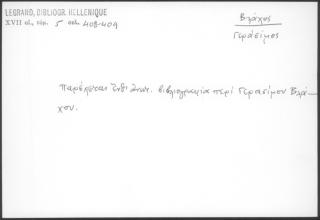 LEGRAND, BIBLIOGR. HELLENIQUE
XVII αἰ., τόμ. 5 σελ. 408-409
Βλάχος
Γεράσιμος
Παρέχεται ἐνθα βιβλιογραφία περὶ Γερασίμου Βλά-
χου.